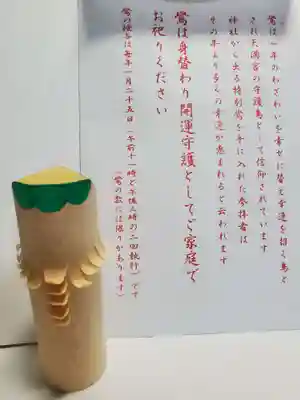 鷽は一年のわざわいを幸せに替え幸運を招く鳥と
され天満宮の守護鳥として信仰されています
神社から出る特別鷽を手に入れた参拝者は
その年より多くの幸運が恵まれると云われます
鷽は身替わり開運守護としてご家庭で
お祀りください
鷽の授与は毎年一月二十五日(午前十一時と午後三時の二回執行)です
(鷽の数には限りがあります)